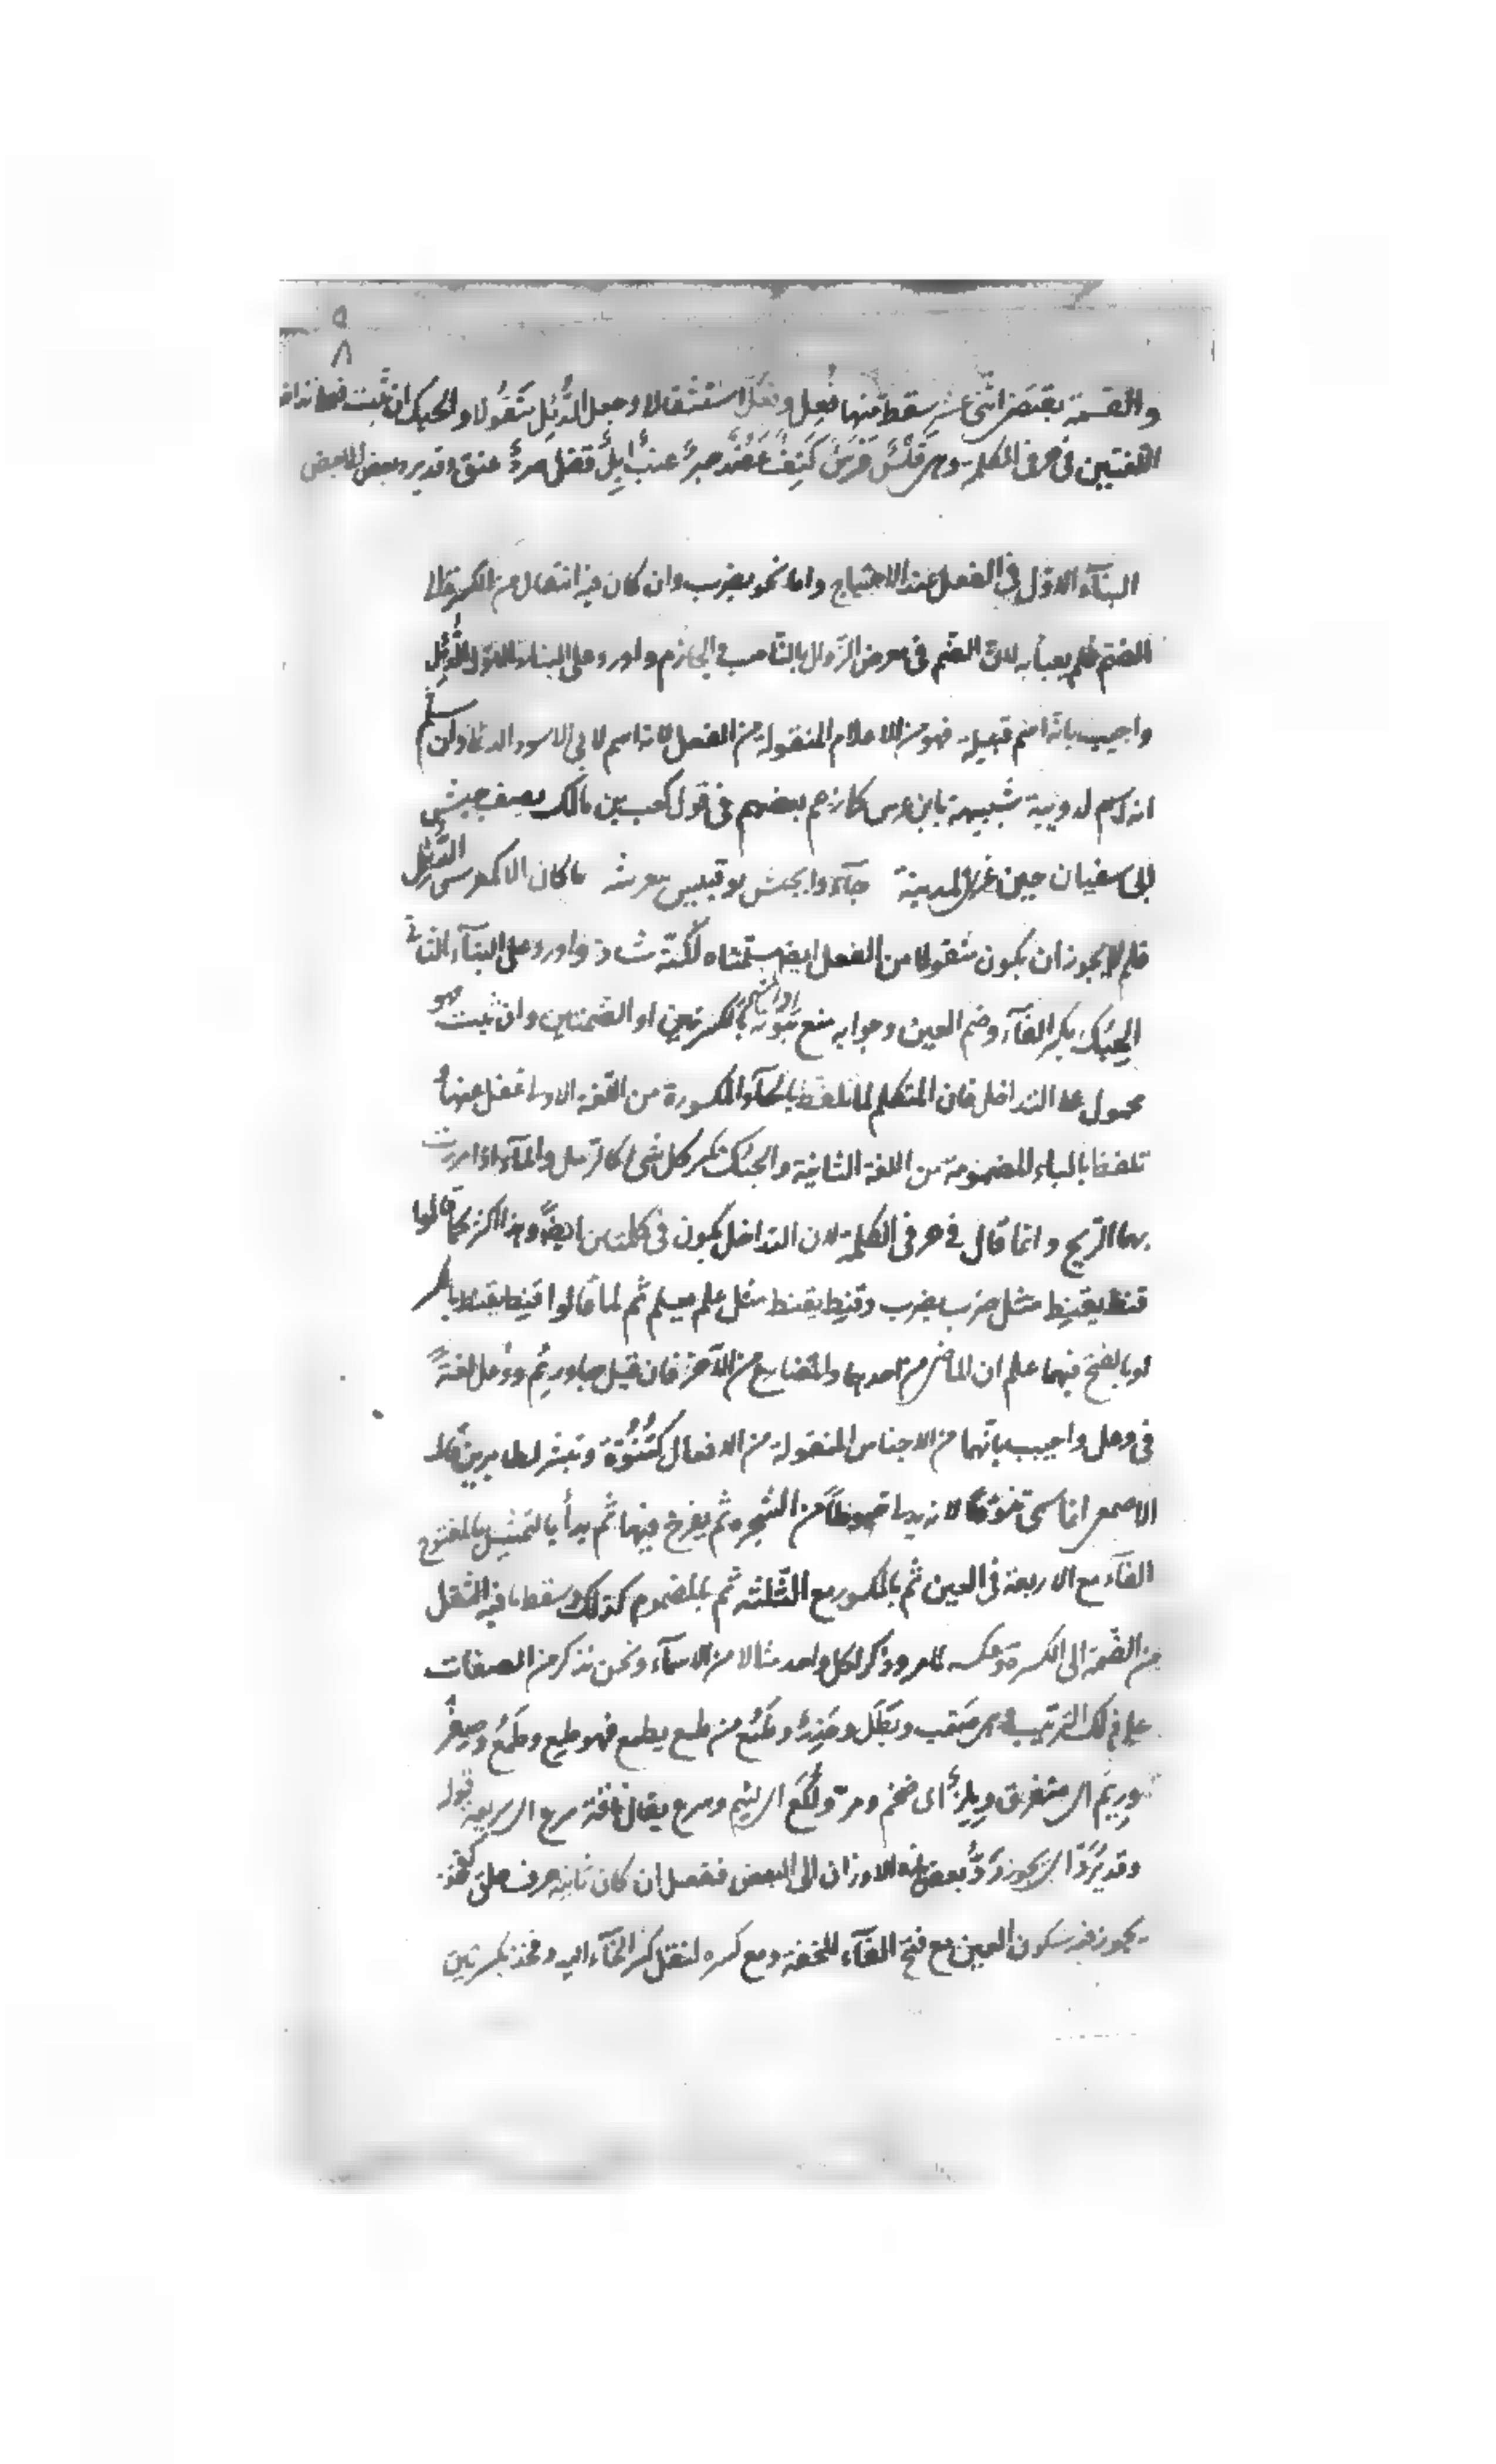 ٥
٨
والقسمة يقتضى اثنى عشر سقط منها فُعِل وفِعُل استثقالا وجعل الدُّئِل منقولا والحبك ان ثبت فعلى تداخل
اللغتين فى حرفى الكلمة وهى فَلْسٌ فَرَسٌ كَتِفٌ عَضُدٌ حبرٌ عنبٌ ابِلٌ قفل صردٌ عنق وقد يرد بعض للبعض
البنآء الاوّل فى الفعل عند الاحتياج واما نحو يضرب وان كان فيه انتقال من الكسرة الى
الضم فلم يعبأ به لانّ الضم فى معرض الزوال بالناصب والجازم واورد على البناء الاول الدُّئِل
واجيب بانّه اسم قبيلة فهو من الاعلام المنقولة من الفعل لانه اسم لابى الاسود الدئلى وان سلم
انه اسم لدويبة شبيهة بابن عرس كما زعم بعضهم فى قول كعب بن مالك يصف جيش
ابى سفيان حين غزى المدينة جآءوا بجيش لو قيس معرسه ما كان الا كمعرس الدُّئِل
فلم لا يجوز ان يكون منقولا من الفعل ايضا سلمناه لكنّه شاذ واورد على البنآء الثانى
الحِبُك بكسر الفآء وضم العين وجوابه منع ثبوته اذ المشهور بالكسرتين او الضمتين وان ثبت فهو
محمول على التداخل فان المتكلم لما تلفظ بالحآء المكسورة من اللغة الاولى غفل عنها و
تلفظ بالباء المضمومة من اللغة الثانية والحبك تكسر كل شئ كالرمل والمآء اذا مرت
بهما الريح وانما قال فى حرفى الكلمة لان التداخل يكون فى كلمتين ايضًا وهذا اكثر كما قالوا
قنط يقنِط مثل ضرب يضرب وقنِط يقنط مثل علم يعلم ثم لما قالوا قنط يقنط بالكسر
او بالفتح فيهما علم ان الماضى من احديهما والمضارع من الآخر فان قيل جاء رُئِم ووُعِل لغةً
فى وعل واجيب بانّهما من الاجناس المنقولة من الافعال كتُنُوِّط وتبشر لطايرين قال
الاصمعى انما سمى تنوّطًا لانه يدلى خيوطًا من الشجرة ثم يفرخ فيها ثم بدأ بالتمثيل بالمفتوح
الفآء مع الاربعة فى العين ثم بالمكسور مع الثلثة ثم بالمضموم كذلك وسقط ما فيه الثقل
من الضمة الى الكسرة وعكسه لما مر وذكر لكل واحد مثالا من الاسمآء ونحن نذكر من الصفات
على ذلك الترتيب وهى صَعْب وبَطَل وحَذِر وطَمُع من طمع يطمع فهو طمع وطمُع وصِفْر
وزِيَم اى متفرق وبِلِز اى ضخم ومرّ ولُكَع اى لئيم وسرح يقال ناقة سرح اى سريعة قوله
وقد يُرَدّ اى يجوز رَدُّ بعض هذه الاوزان الى البعض ففعل ان كان ثانيه حرف حلق كفخذ
يجوز فيه سكون العين مع فتح الفآء للخفة ومع كسره لنقل كسر الخآء اليه وفخذ بكسرتين